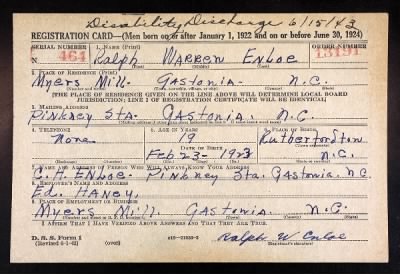 Disability Discharge 6/15/43
REGISTRATION CARD—(Men born on or after January 1, 1922 and on or before June 30, 1924)
SERIAL NUMBER 1. NAME (Print) ORDER NUMBER
N 464 Ralph WARREN ENLOE 13191
(First) (Middle) (Last)
2. PLACE OF RESIDENCE (Print)
Myers Mill. GASTONIA. N.C.
[THE PLACE OF RESIDENCE GIVEN ON THE LINE ABOVE WILL DETERMINE LOCAL BOARD
JURISDICTION; LINE 2 OF REGISTRATION CERTIFICATE WILL BE IDENTICAL]
3. MAILING ADDRESS
Pinkney Sta. GASTONIA. N.C.
4. TELEPHONE 5. AGE IN YEARS 6. PLACE OF BIRTH
None 19 Rutherfordton
DATE OF BIRTH
Feb 23- 1923 N.C.
7. NAME AND ADDRESS OF PERSON WHO WILL ALWAYS KNOW YOUR ADDRESS
C.H. ENLOE- Pinkney Sta. Gastonia. N.C.
8. EMPLOYER'S NAME AND ADDRESS
Ed. HANEY.
9. PLACE OF EMPLOYMENT OR BUSINESS
Myers Mill. GASTONIA. N.C.
I AFFIRM THAT I HAVE VERIFIED ABOVE ANSWERS AND THAT THEY ARE TRUE.
D. S. S. Form 1
(Revised 6-1-42) (over)
Ralph W Enloe
(Registrant's signature)